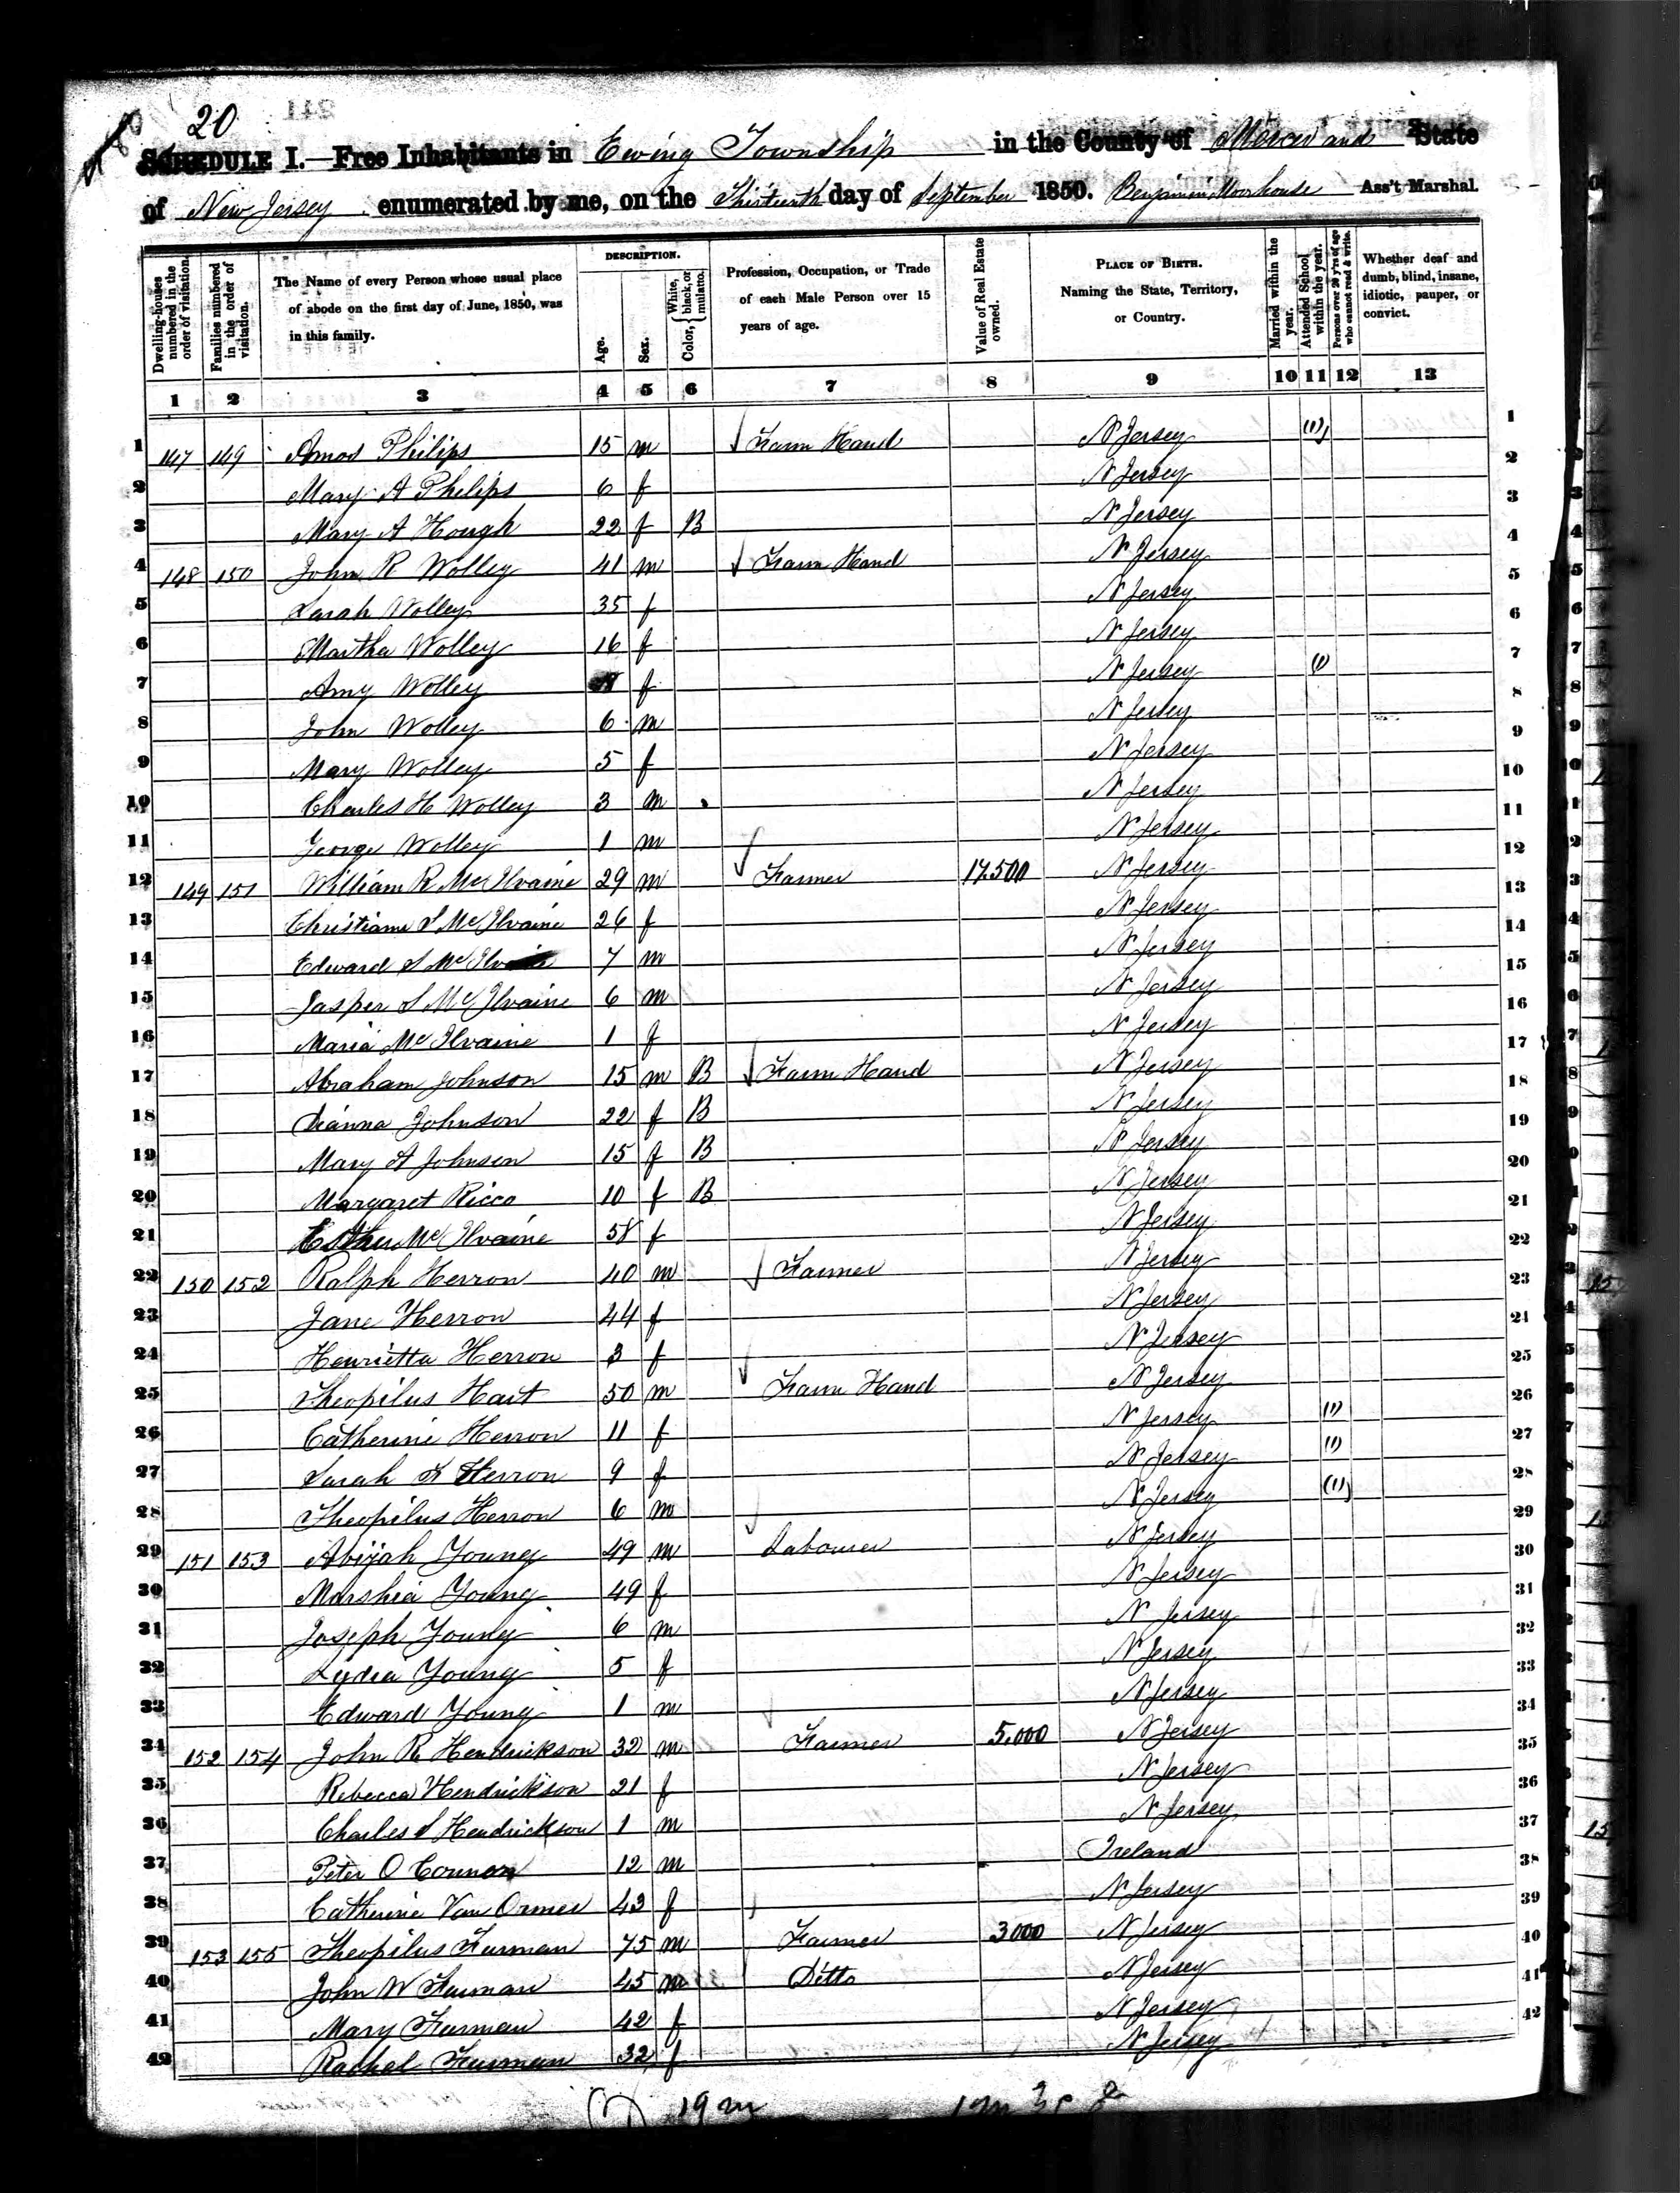 20
SCHEDULE I.—Free Inhabitants in Ewing Township in the County of Mercer and State
of New Jersey enumerated by me, on the Thirteenth day of September 1850. Benjamin Moorhouse Ass't Marshal.
Dwelling-houses numbered in the order of visitation.
Families numbered in the order of visitation.
The Name of every Person whose usual place of abode on the first day of June, 1850, was in this family.
DESCRIPTION.
Age.
Sex.
Color, White, black, or mulatto.
Profession, Occupation, or Trade of each Male Person over 15 years of age.
Value of Real Estate owned.
PLACE OF BIRTH. Naming the State, Territory, or Country.
Married within the year.
Attended School within the year.
Persons over 20 y'rs of age who cannot read & write.
Whether deaf and dumb, blind, insane, idiotic, pauper, or convict.
1 2 3 4 5 6 7 8 9 10 11 12 13
1 147 149 Amos Philips 15 m Farm Hand N Jersey (1) 1
2 Mary A Philips 6 f N Jersey 2
3 Mary A Hough 22 f B N Jersey 3
4 148 150 John R Wolley 41 m Farm Hand N Jersey 4
5 Sarah Wolley 35 f N Jersey 5
6 Martha Wolley 16 f N Jersey 6
7 Amy Wolley f N Jersey (1) 7
8 John Wolley 6 m N Jersey 8
9 Mary Wolley 5 f N Jersey 9
10 Charles H Wolley 3 m N Jersey 10
11 George Wolley 1 m N Jersey 11
12 149 151 William R McIlvaine 29 m Farmer 17.500 N Jersey 12
13 Christiana S McIlvaine 26 f N Jersey 13
14 Edward S McIlvaine 7 m N Jersey 14
15 Jasper S McIlvaine 6 m N Jersey 15
16 Maria McIlvaine 1 f N Jersey 16
17 Abraham Johnson 15 m B Farm Hand N Jersey 17
18 Dianna Johnson 22 f B N Jersey 18
19 Mary A Johnson 15 f B N Jersey 19
20 Margaret Ricco 10 f B N Jersey 20
21 Esther McIlvaine 58 f N Jersey 21
22 150 152 Ralph Herron 40 m Farmer N Jersey 22
23 Jane Herron 44 f N Jersey 23
24 Henrietta Herron 3 f N Jersey 24
25 Theopilus Hart 50 m Farm Hand N Jersey 25
26 Catherine Herron 11 f N Jersey (1) 26
27 Sarah F Herron 9 f N Jersey (1) 27
28 Theopilus Herron 6 m N Jersey (1) 28
29 151 153 Abijah Young 49 m Labourer N Jersey 29
30 Marshia Young 49 f N Jersey 30
31 Joseph Young 6 m N Jersey 31
32 Lydia Young 5 f N Jersey 32
33 Edward Young 1 m N Jersey 33
34 152 154 John R Hendrickson 32 m Farmer 5.000 N Jersey 34
35 Rebecca Hendrickson 21 f N Jersey 35
36 Charles S Hendrickson 1 m N Jersey 36
37 Peter O Connor 12 m Ireland 37
38 Catherine Van Ormer 43 f N Jersey 38
39 153 155 Theopilus Furman 75 m Farmer 3000 N Jersey 39
40 John W Furman 45 m Ditto N Jersey 40
41 Mary Furman 42 f N Jersey 41
42 Rachel Furman 32 f N Jersey 42
19 m